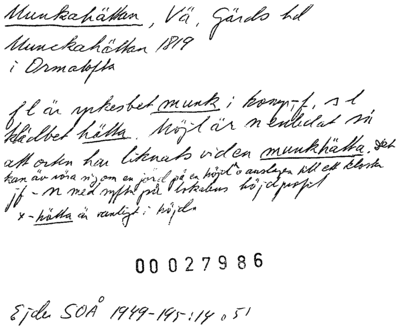 Munkahättan, Vä, Gärds hd
Munckahättan 1819
i Ormatofta
f l är yrkesbet munk i komp-f, s l
klädbet hätta. Möjl är n enbedat
att orten har liknats vid en munkhätta. Det
kan äv röra sig om en jord på en höjd o anslagen till ett kloster
jf - n med syfte på lokalens höjdprofil
x-hätta är vanligt i höjdn
00027986
Ejder SOÅ 1949-195:14, 51